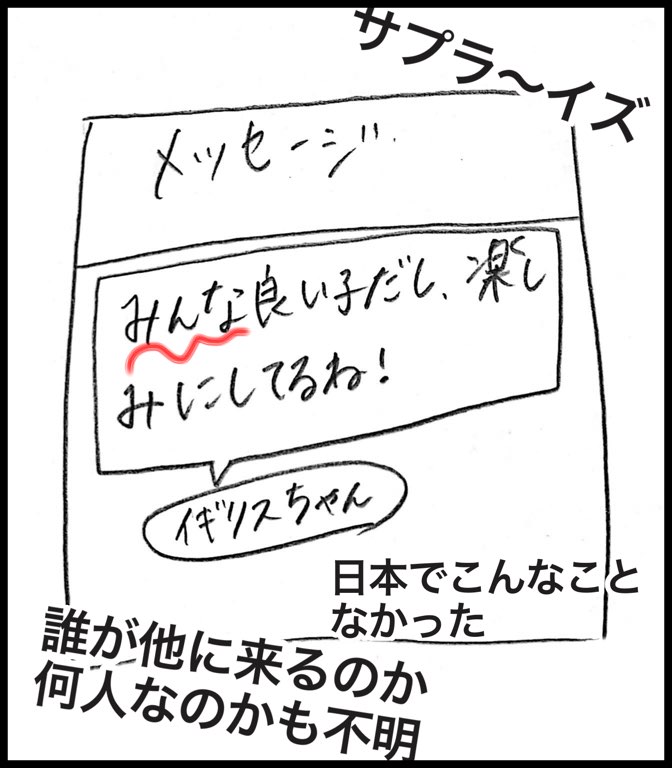 サプラ〜イズ
メッセージ
みんな良い子だし、楽し
みにしてるね！
イギリスちゃん
日本でこんなこと
なかった
誰が他に来るのか
何人なのかも不明